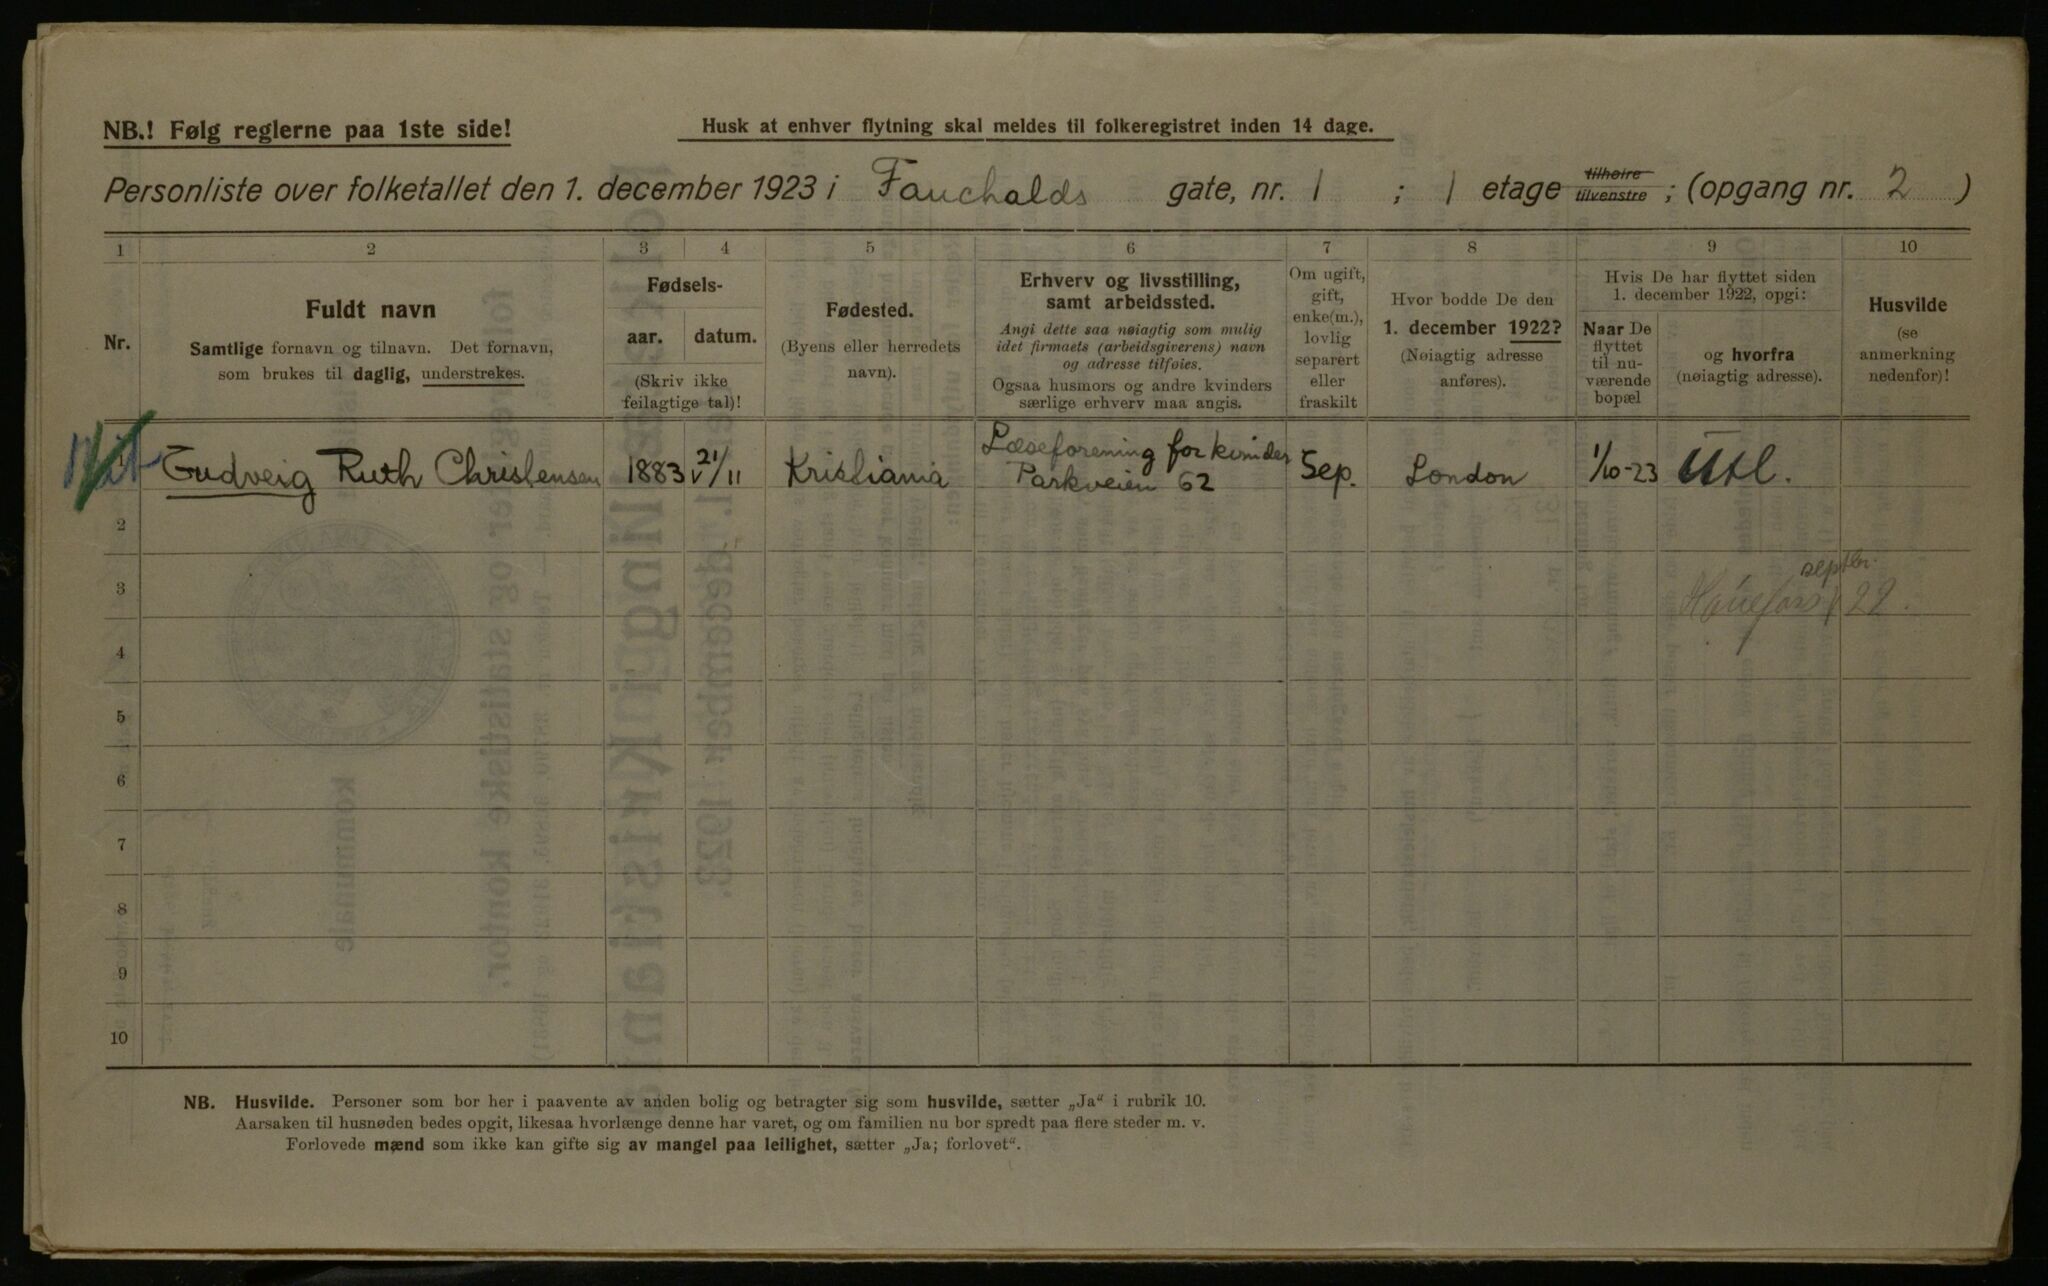 NB.! Følg reglerne paa 1ste side!
Husk at enhver flytning skal meldes til folkeregistret inden 14 dage.
Personliste over folketallet den 1. december 1923 i Fauchalds gate, nr. 1 ; 1 etage tilhøire tilvenstre ; (opgang nr. 2 )
1 2 3 4 5 6 7 8 9 10
Nr.
Fuldt navn
Samtlige fornavn og tilnavn. Det fornavn,
som brukes til daglig, understrekes.
Fødsels-
aar. datum.
(Skriv ikke
feilagtige tal)!
Fødested.
(Byens eller herredets
navn).
Erhverv og livsstilling,
samt arbeidssted.
Angi dette saa nøiagtig som mulig
idet firmaets (arbeidsgiverens) navn
og adresse tilføies.
Ogsaa husmors og andre kvinders
særlige erhverv maa angis.
Om ugift,
gift,
enke(m.),
lovlig
separert
eller
fraskilt
Hvor bodde De den
1. december 1922?
(Nøiagtig adresse
anføres).
Hvis De har flyttet siden
1. december 1922, opgi:
Naar De
flyttet
til nu-
værende
bopæl
og hvorfra
(nøiagtig adresse).
Husvilde
(se
anmerkning
nedenfor)!
Gudveig Ruth Christensen 1883 21/11 Kristiania Læseforening for kvinder
Parkveien 62 Sep. London 1/10-23 Utl.
2
septbr.
3 Hønefoss 22.
4
5
6
7
8
9
10
NB. Husvilde. Personer som bor her i paavente av anden bolig og betragter sig som husvilde, sætter „Ja" i rubrik 10.
Aarsaken til husnøden bedes opgit, likesaa hvorlænge denne har varet, og om familien nu bor spredt paa flere steder m. v.
Forlovede mænd som ikke kan gifte sig av mangel paa leilighet, sætter „Ja; forlovet".